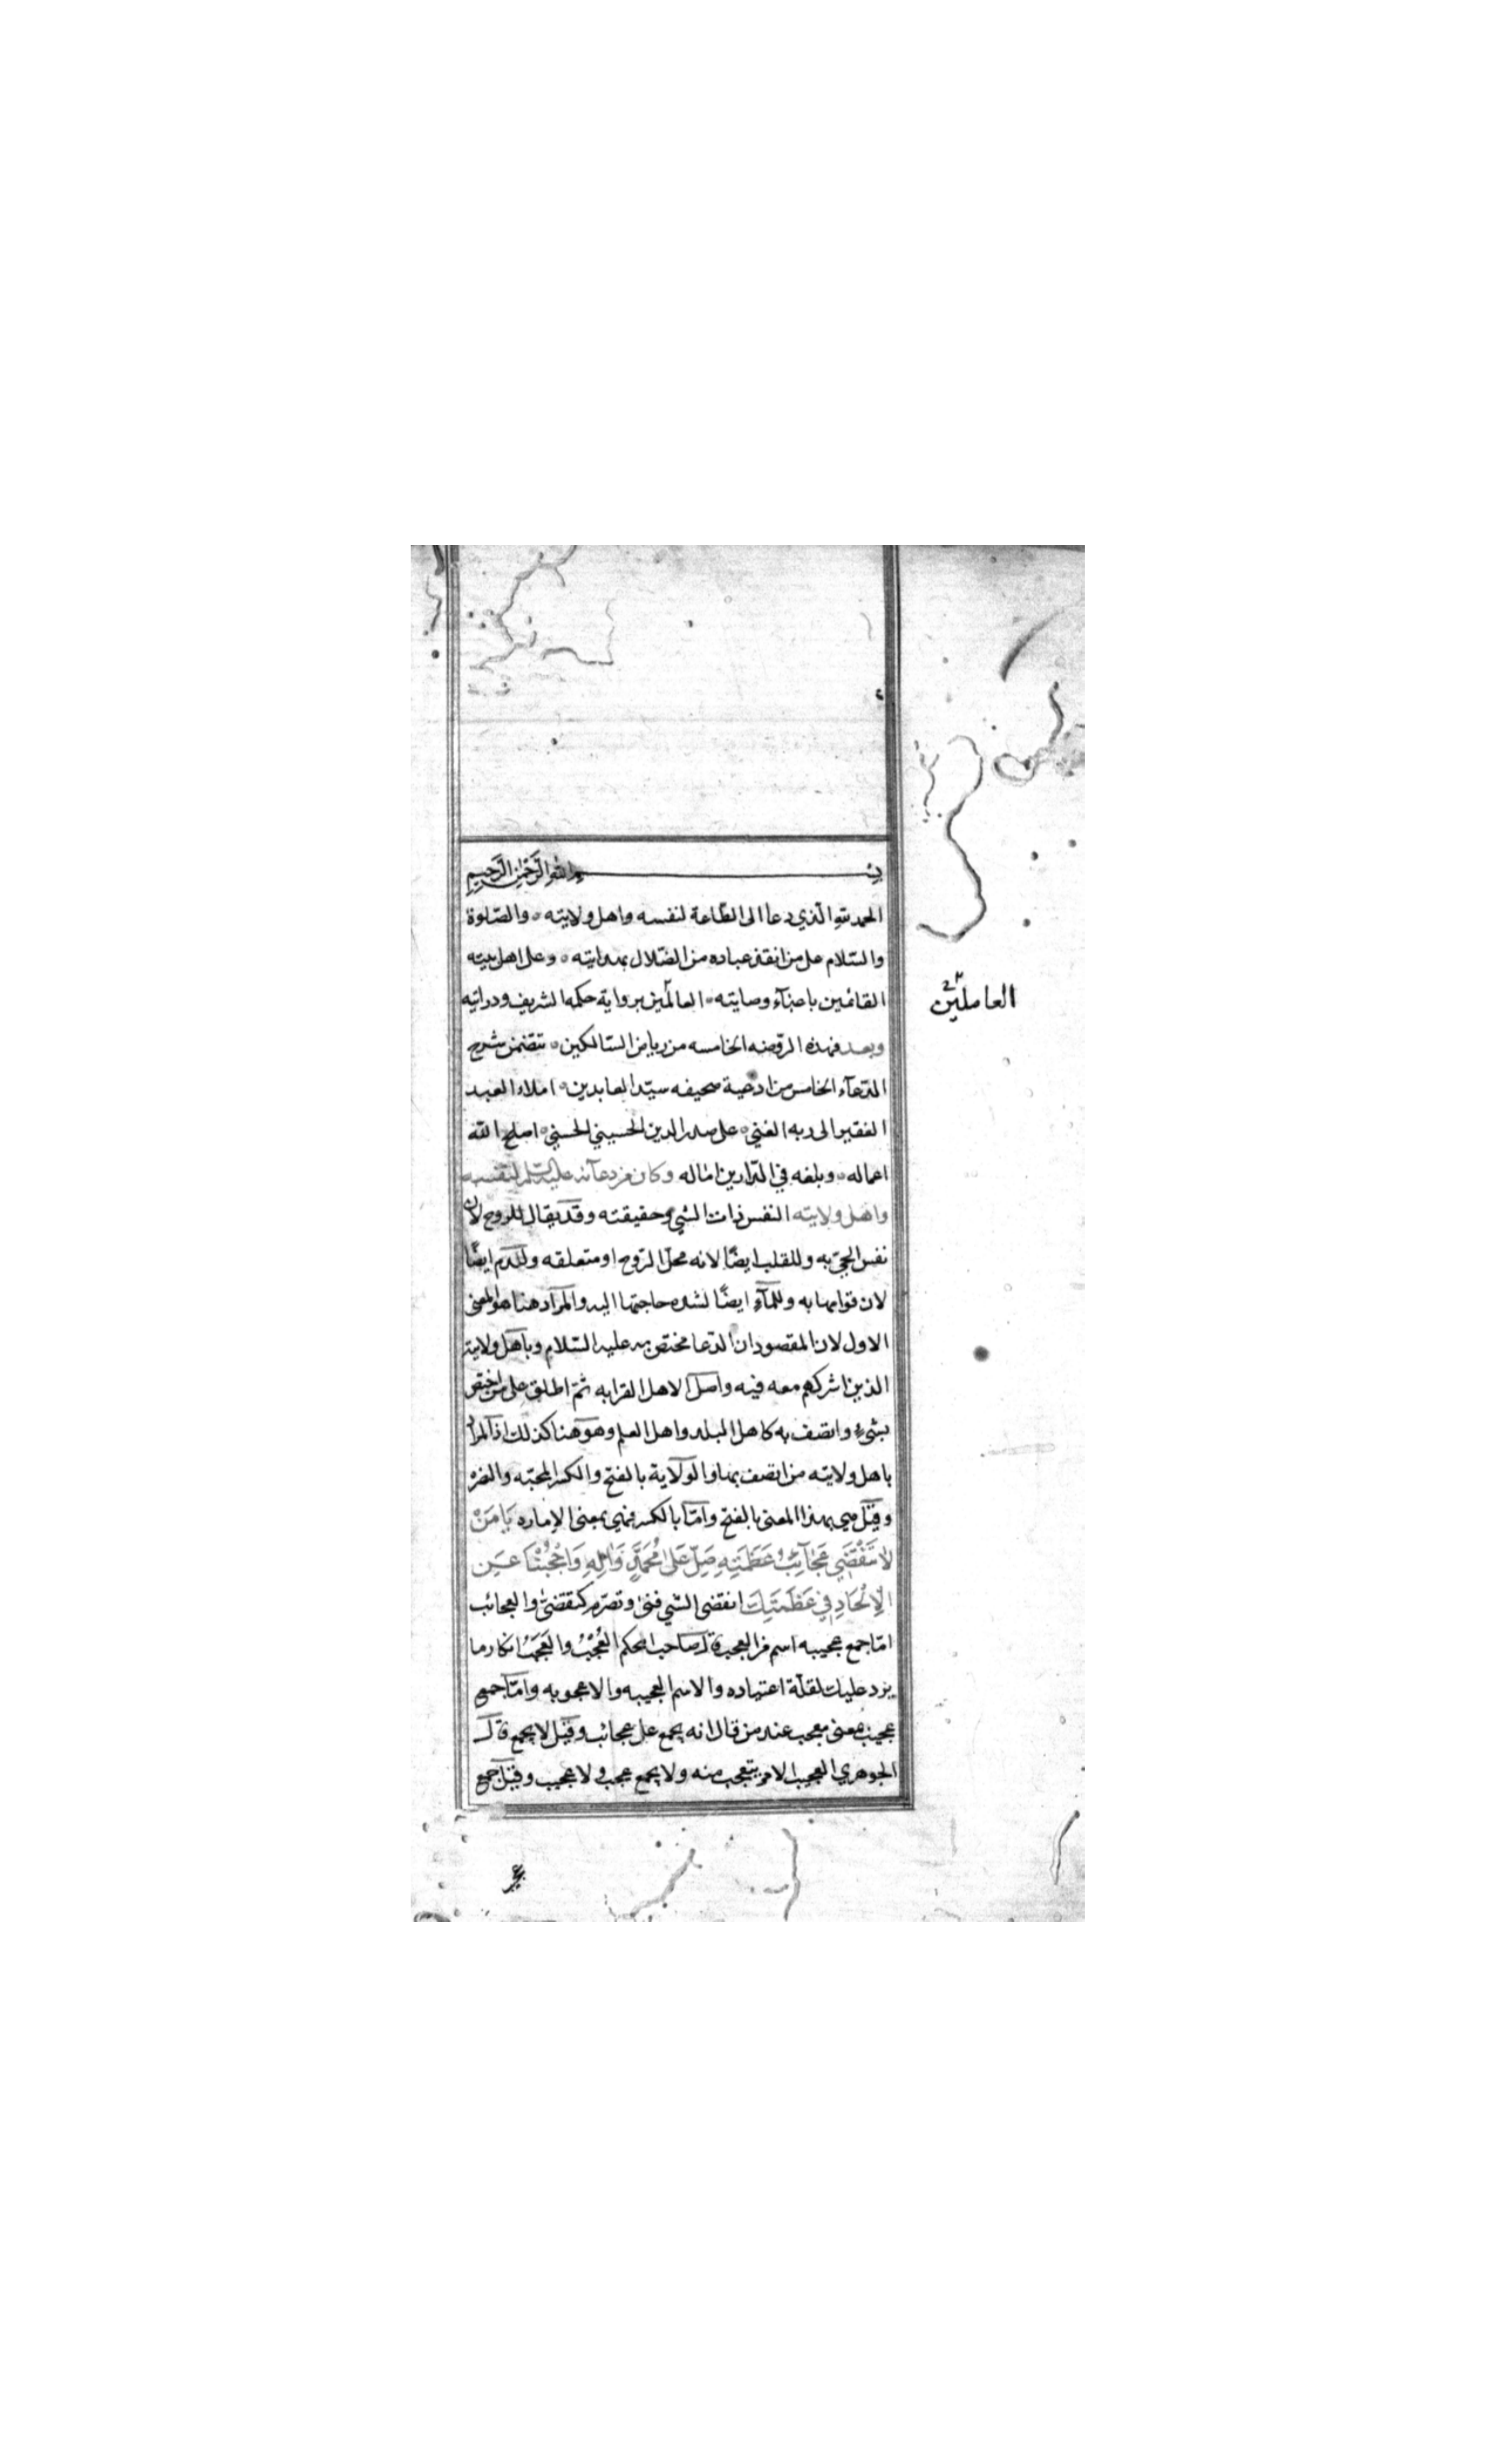 بسم الله الرحمن الرحيم
الحمد لله الذي دعا الى الطاعة لنفسه واهل ولايته والصلوة
والسلام على من انقذ عباده من الضلال بهدايته وعلى اهل بيته
القائمين باعبآء وصايته العالمين برواية حكمه الشريف ودرايته
العاملين
وبعد فهذه الروضه الخامسه من رياض السالكين تتضمن شرح
الدعآء الخامس من ادعية صحيفه سيد العابدين املاء العبد
الفقير الى ربه الغني على صدر الدين الحسيني الحسني اصلح الله
اعماله وبلغه في الدارين اماله وكان من دعآئه عليه السلم لنفسه
واهل ولايته النفس ذات الشي وحقيقته وقد يقال للروح لان
نفس الحي به وللقلب ايضًا لانه محل الروح او متعلقه وللدم ايضًا
لان قوامها به وللمآء ايضًا لشده حاجتها اليه والمراد هنا هو المعنى
الاول لان المقصود ان الدعا مختص به عليه السلام وباهل ولايته
الذين اشركهم معه فيه واصل الاهل القرابه ثم اطلق على من اختص
بشيء واتصف به كاهل البلد واهل العلم وهو هنا كذلك اذ المراد
باهل ولايته من اتصف بها والولاية بالفتح والكسر المحبه والنصره
وقيل هي بهذا المعنى بالفتح وامّا بالكسر فهي بمعنى الاماره يَا مَنْ
لَا تَنْقَضِي عَجَآئِبُ عَظَمَتِهِ صَلِّ عَلَى مُحَمَّدٍ وَاٰلِهِ وَاحْجُبْنَا عَنِ
الْاِلْحَادِ فِي عَظَمَتِكَ انقضى الشي فنى وتصرّم كتقضى والعجائب
امّا جمع عجيبه اسم من العجب قال صاحب المحكم العُجْبُ والعَجَبُ انكار ما
يرد عليك لقلة اعتياده والاسم العجيبه والاعجوبه وامّا جمع
عجيب بمعنى معجب عند من قال انه يجمع على عجائب وقيل لا يجمع قال
الجوهري العجيب الامر يتعجب منه ولا يجمع عجب ولا عجيب وقيل جمع